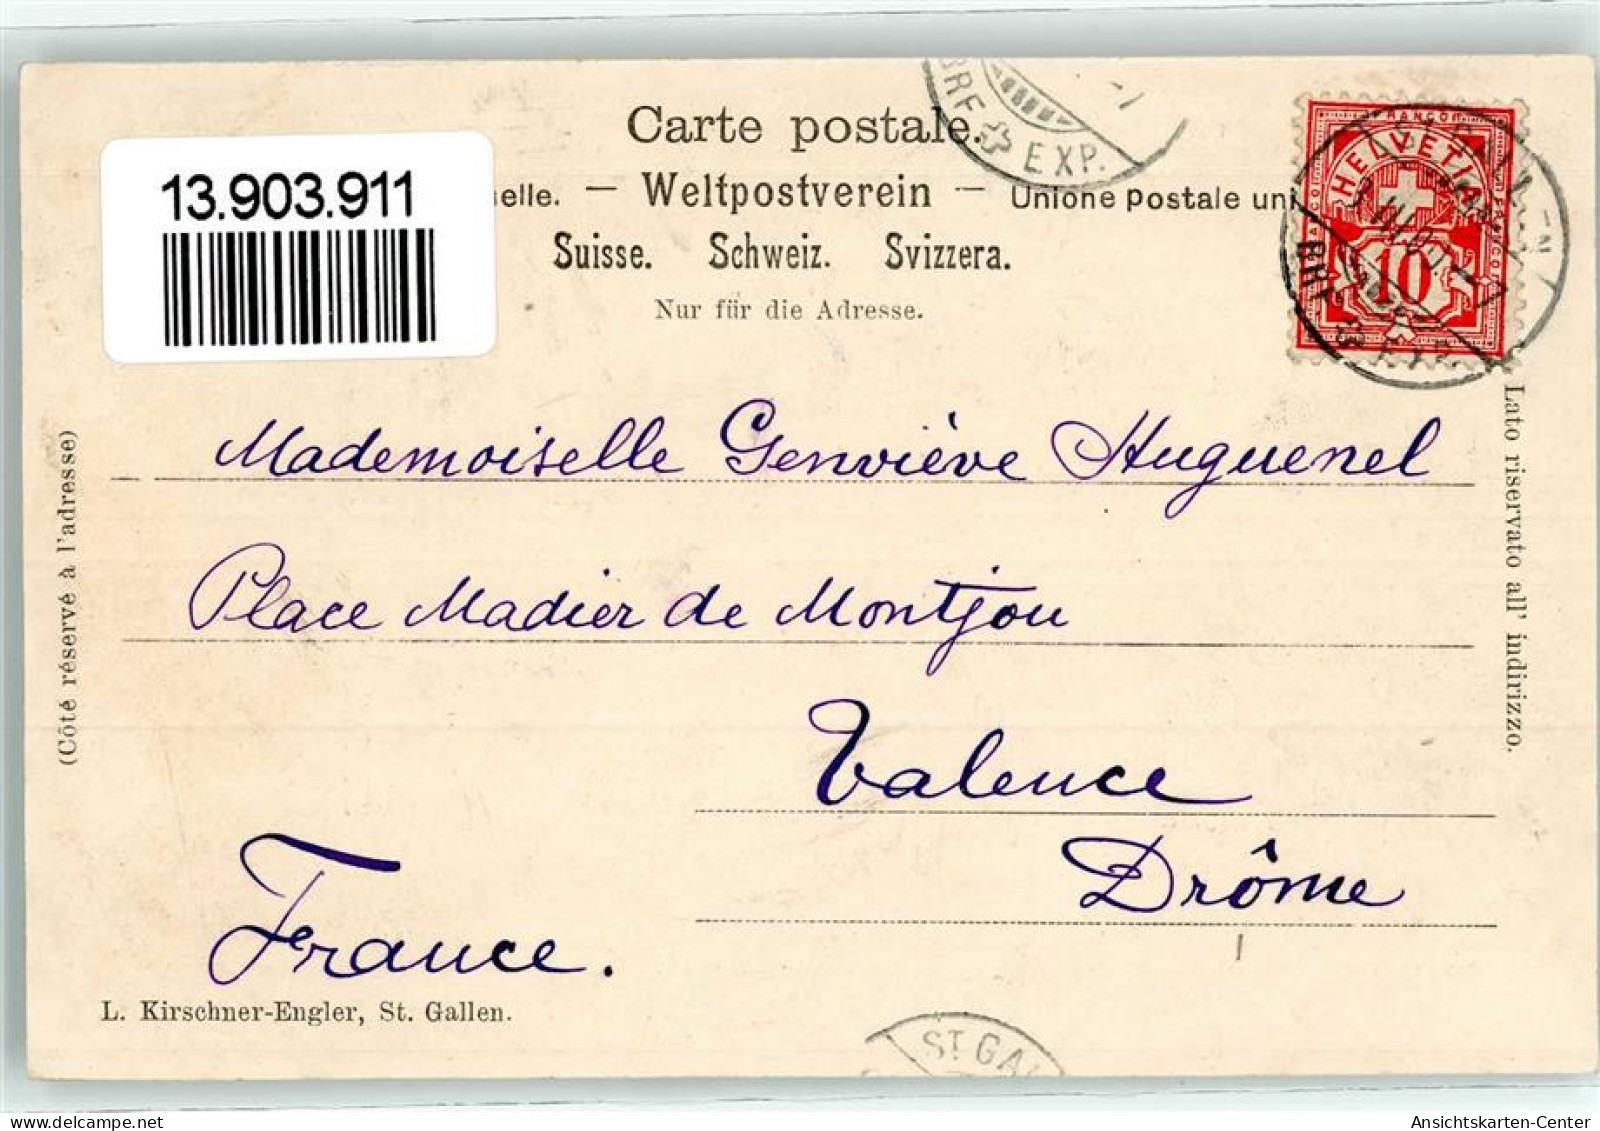 Carte postale.
13.903.911
elle. — Weltpostverein — Unione postale uni
Suisse. Schweiz. Svizzera.
Nur für die Adresse.
BRF. EXP.
FRANCO
HELVETIA
10
Mademoiselle Geneviève Huguenel
Place Madier de Montjou
Valence
Drôme
France.
(Côté réservé à l'adresse)
Lato riservato all' indirizzo.
L. Kirschner-Engler, St. Gallen.
ST. GAL
Ansichtskarten-Center